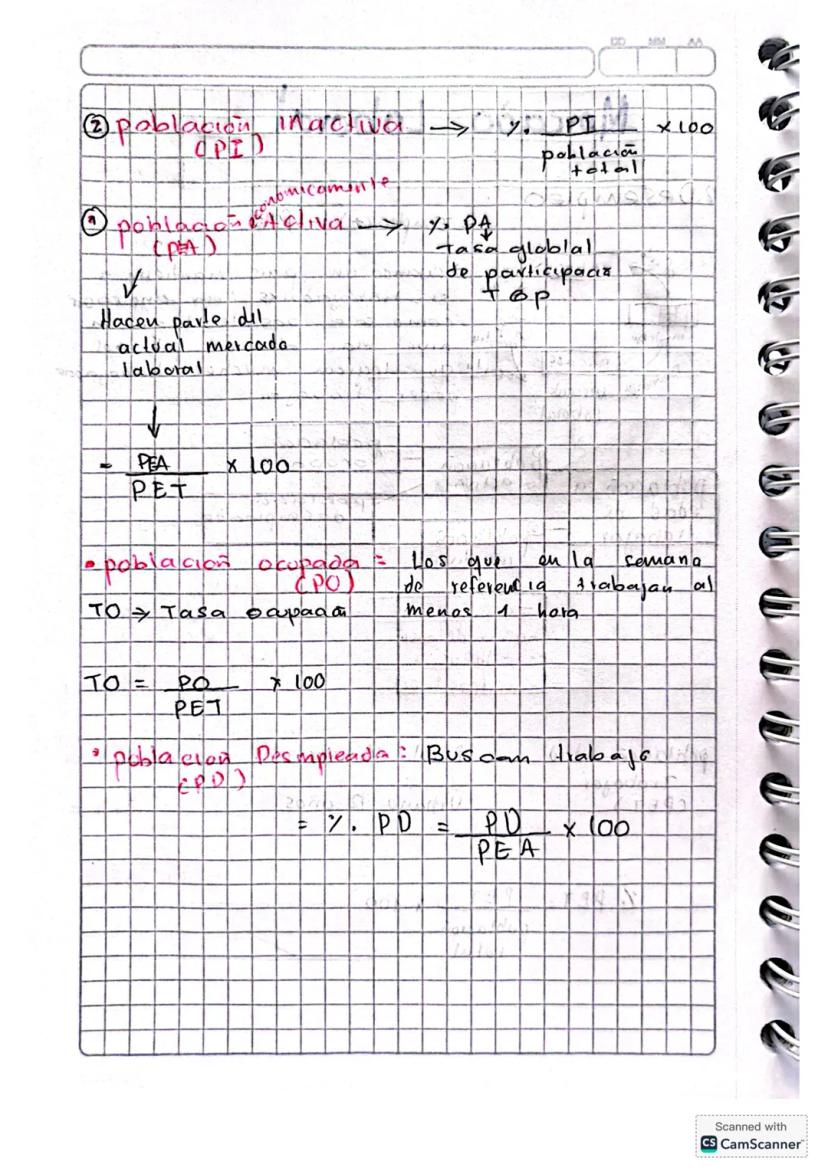 DD MM AA
② población inactiva → %. PI x100
(PI) población
total
económicamente
① población Activa → %. PA
(PEA) ↓
Tasa globlal
de participació
TGP
↓
Hacen parte del
actual mercado
laboral
↓
= PEA x 100
PET
• población ocupada = Los que en la semana
(PO) de referencia trabajan al
TO ⇒ Tasa ocupada menos 1 hora
TO = PO x 100
PET
• población Desmpleada: Buscan trabajo
(PD)
= %. PD = PD x 100
PEA
Scanned with
CS CamScanner